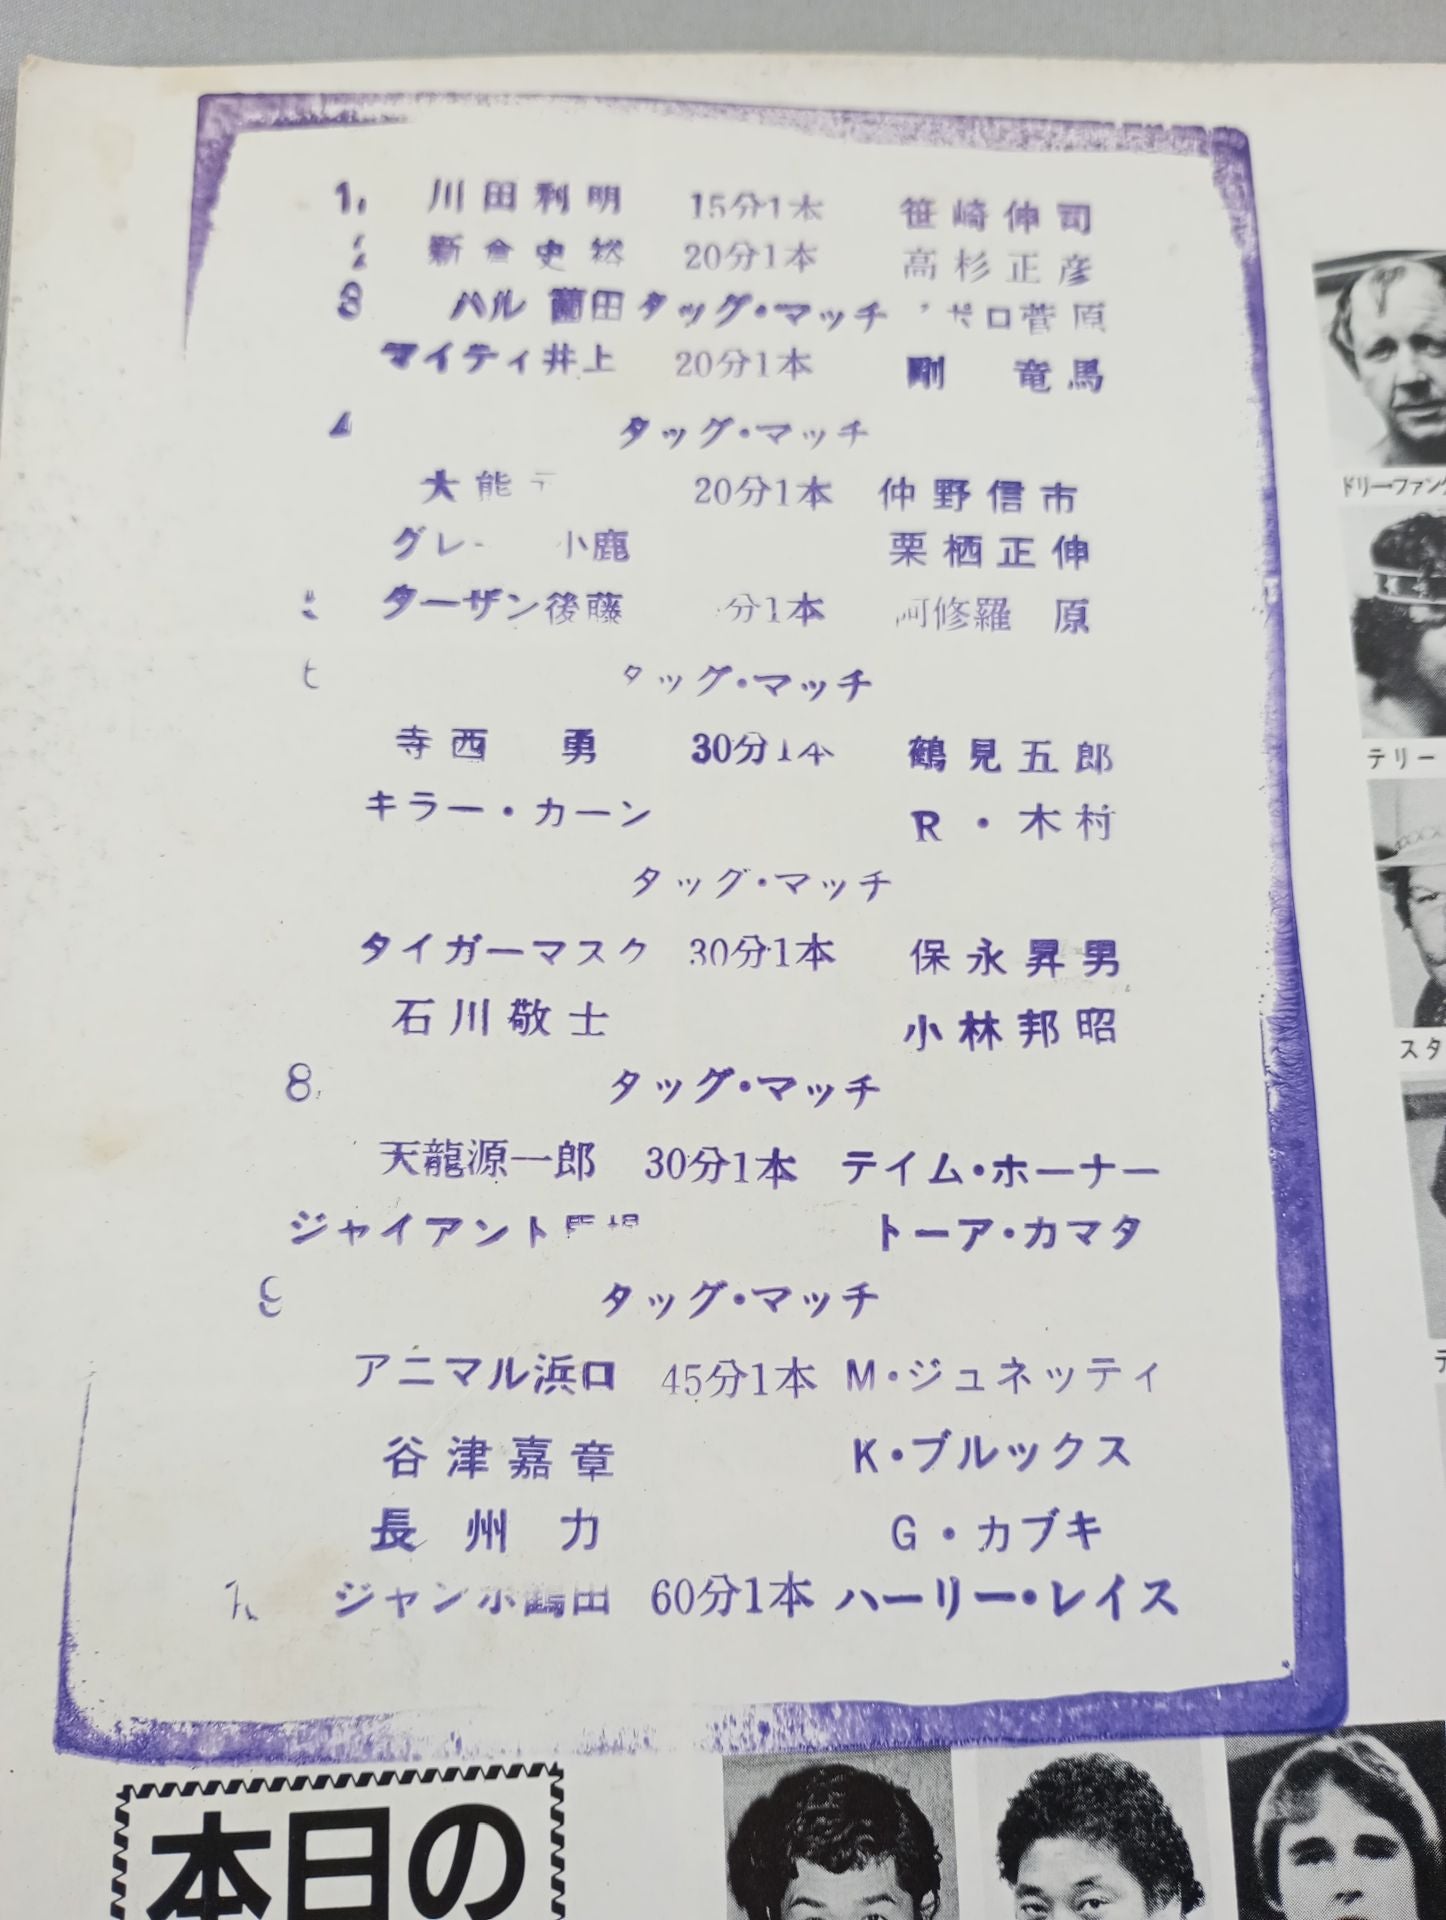 1. 川田利明 15分1本 笹崎伸司
新倉史裕 20分1本 高杉正彦
3 ハル薗田 タッグ・マッチ ポロ菅原
マイティ井上 20分1本 剛 竜馬
4 タッグ・マッチ
大熊 20分1本 仲野信市
グレ 小鹿 栗栖正伸
ターザン後藤 分1本 阿修羅 原
タッグ・マッチ
寺西 勇 30分1本 鶴見五郎
キラー・カーン R・木村
タッグ・マッチ
タイガーマスク 30分1本 保永昇男
石川敬士 小林邦昭
8. タッグ・マッチ
天龍源一郎 30分1本 テイム・ホーナー
ジャイアント馬場 トーア・カマタ
9 タッグ・マッチ
アニマル浜口 45分1本 M・ジュネッティ
谷津嘉章 K・ブルックス
長州 力 G・カブキ
ジャンボ鶴田 60分1本 ハーリー・レイス
本日の
ドリー・ファンク
テリー
スタ
テ